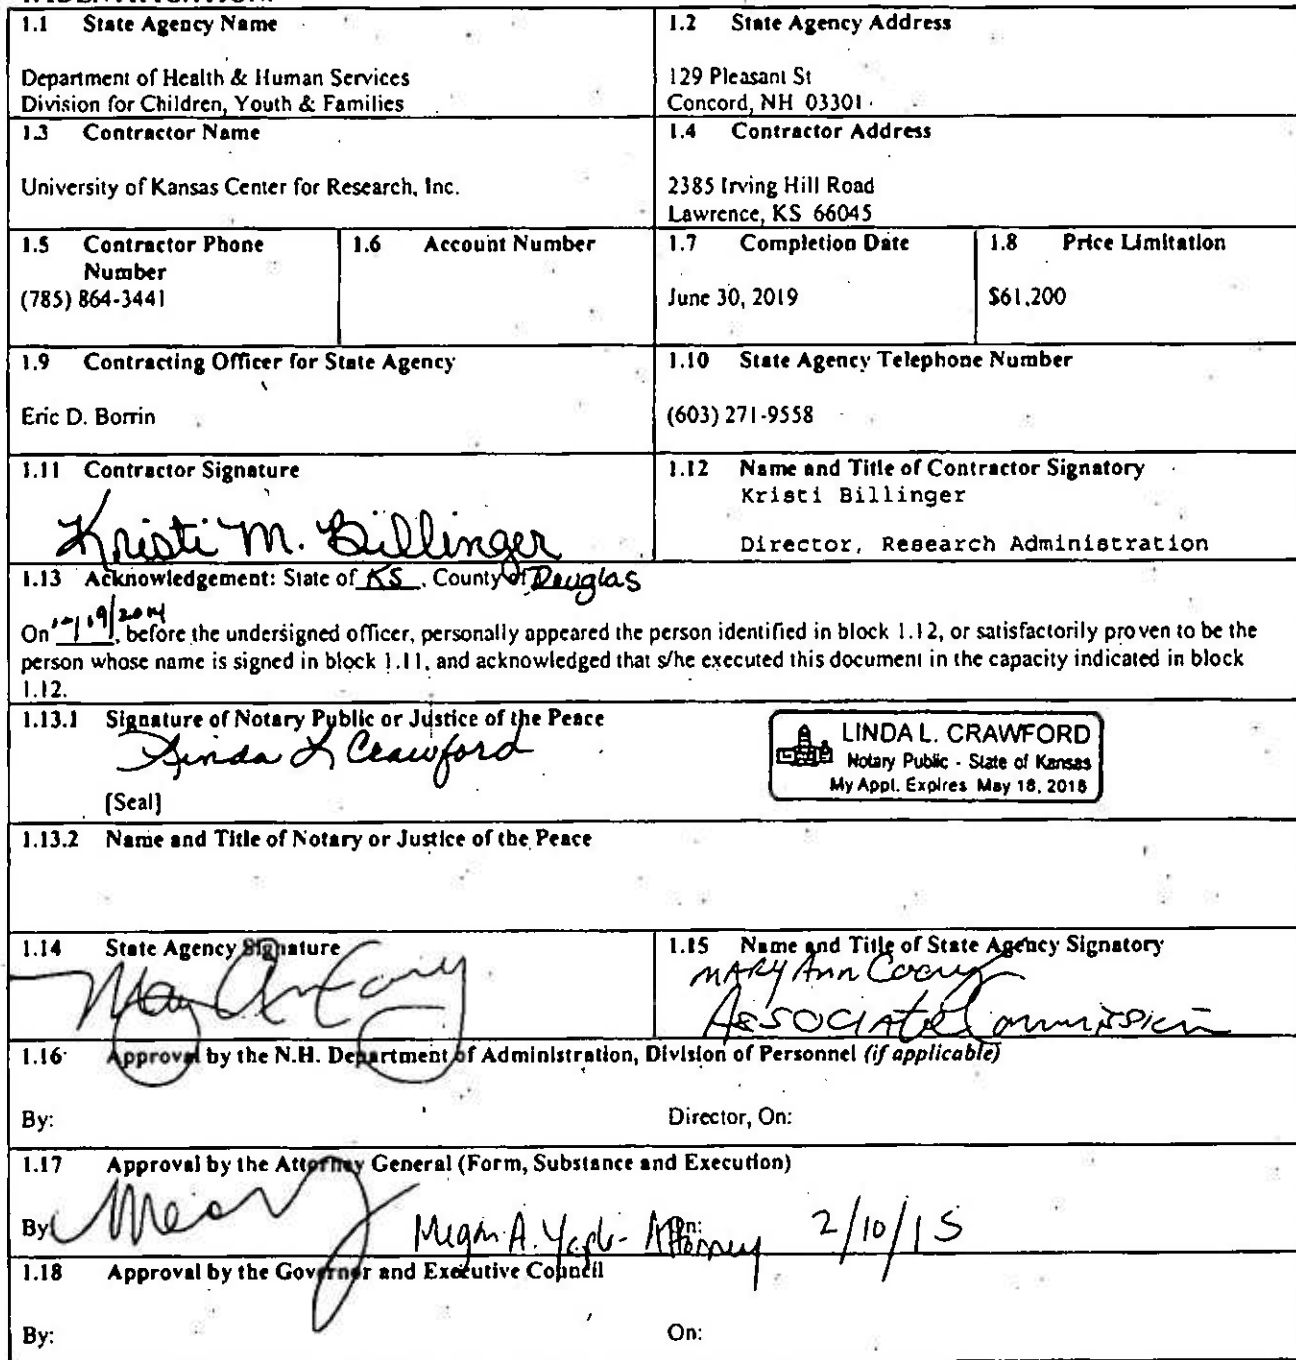 1.1 State Agency Name
Department of Health & Human Services
Division for Children, Youth & Families
1.2 State Agency Address
129 Pleasant St
Concord, NH 03301
1.3 Contractor Name
University of Kansas Center for Research, Inc.
1.4 Contractor Address
2385 Irving Hill Road
Lawrence, KS 66045
1.5 Contractor Phone
Number
(785) 864-3441
1.6 Account Number
1.7 Completion Date
June 30, 2019
1.8 Price Limitation
$61,200
1.9 Contracting Officer for State Agency
Eric D. Borrin
1.10 State Agency Telephone Number
(603) 271-9558
1.11 Contractor Signature
Kristi M. Billinger
1.12 Name and Title of Contractor Signatory
Kristi Billinger
Director, Research Administration
1.13 Acknowledgement: State of KS, County of Douglas
On , before the undersigned officer, personally appeared the person identified in block 1.12, or satisfactorily proven to be the
person whose name is signed in block 1.11, and acknowledged that s/he executed this document in the capacity indicated in block
1.12.
1.13.1 Signature of Notary Public or Justice of the Peace
Linda L Crawford
[Seal]
LINDA L. CRAWFORD
Notary Public - State of Kansas
My Appl. Expires May 18, 2018
1.13.2 Name and Title of Notary or Justice of the Peace
1.14 State Agency Signature
1.15 Name and Title of State Agency Signatory
MARY Ann Cooney
Associate Commission
1.16 Approval by the N.H. Department of Administration, Division of Personnel (if applicable)
By:
Director, On:
1.17 Approval by the Attorney General (Form, Substance and Execution)
By: Megan A. - Attorney On: 2/10/15
1.18 Approval by the Governor and Executive Council
By:
On: